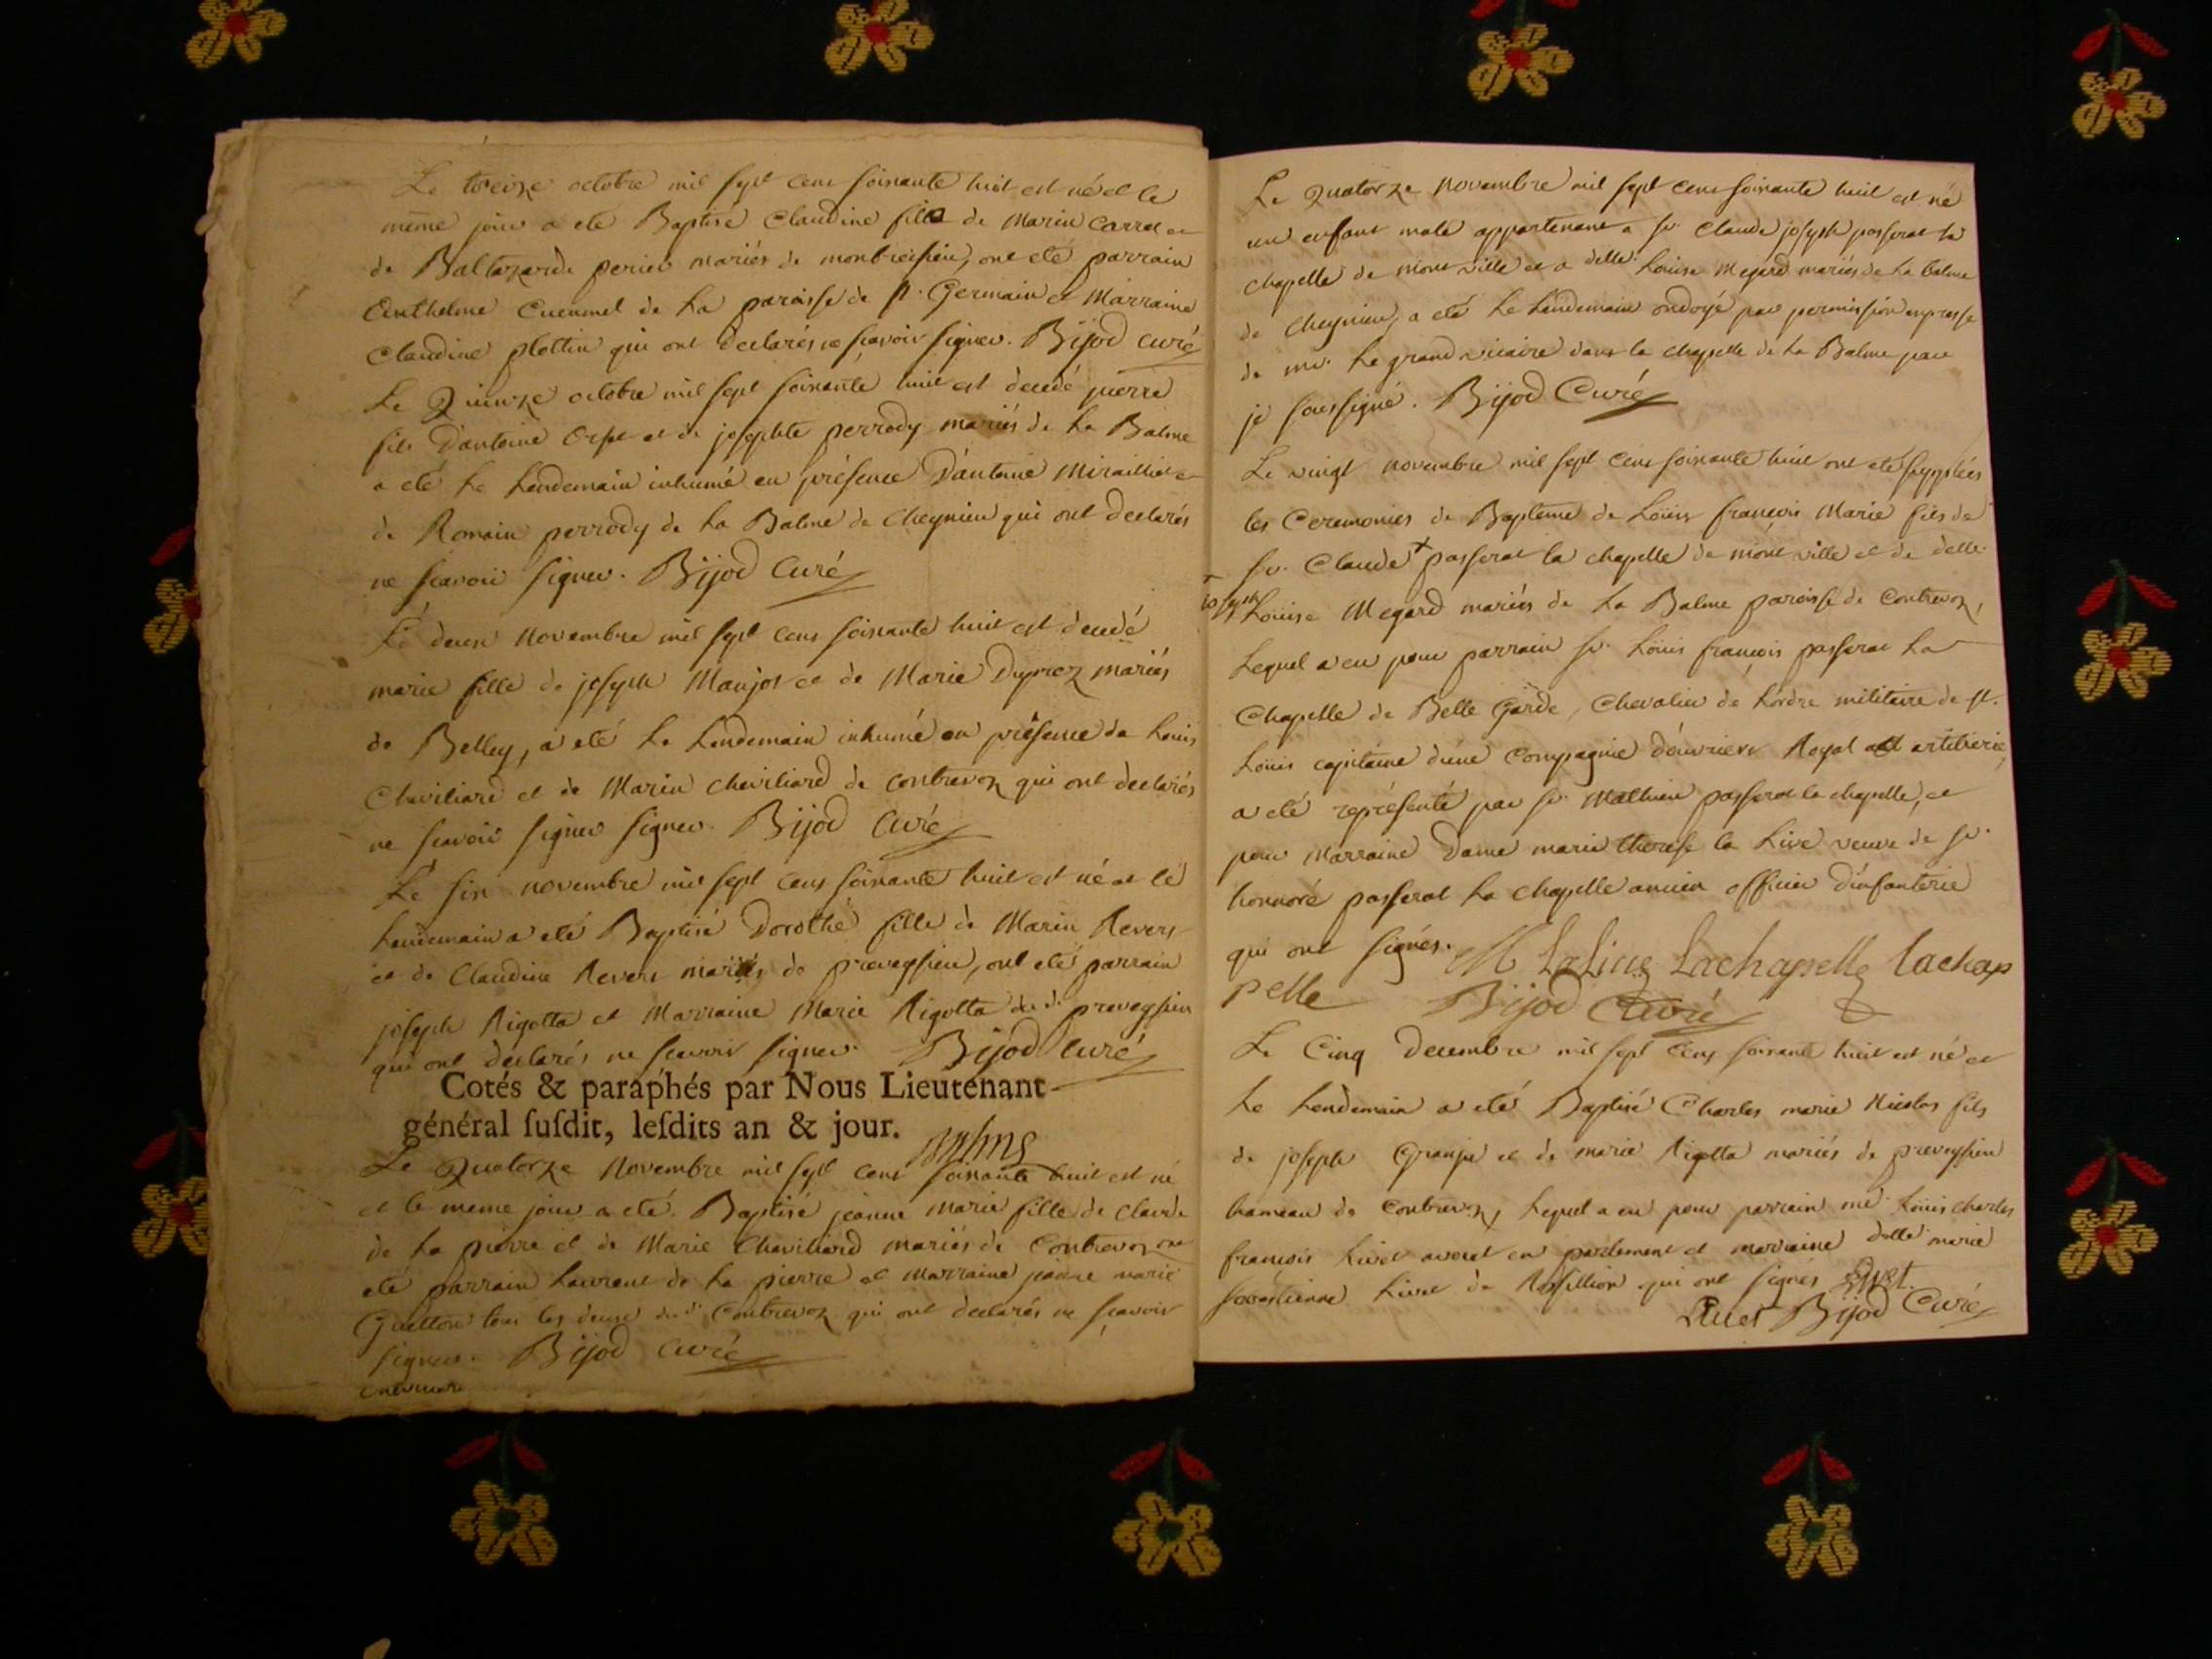 Le treize octobre mil sept cens soixante huit est né et le
même jour a eté Baptisé Claudine fille de Marin Carrel et
de Baltazarde perier mariés de montbreisieu, ont eté parrain
Anthelme Cuennel de la paroisse de st. Germain et Marraine
Claudine plottin qui ont declarés ne sçavoir signer. Bijod Curé
Le Quinze octobre mil sept soixante huit est decedé pierre
fils D'antoine et de josephte perrody mariés de La Balme
a eté Le Lendemain inhumé en présence D'antoine Mirailliet et
de Romain perrody de La Balme de Cheynieu qui ont declarés
ne scavoir signer. Bijod Curé
Le deux Novembre mil sept cens soixante huit est decedé
marie fille de joseph Maujot et de Marie Duprez mariés
de Belley, a eté Le Lendemain inhumé en présence de Louis
Chaviliard et de Marin Chaviliard de Contrevoz qui ont declarés
ne scavoir signer signer. Bijod Curé
Le six novembre mil sept cens soixante huit est né et le
Lendemain a eté Baptisé Dorothé fille de Marin Revers
et de Claudine Revers mariés de preveyssieu, ont eté parrain
joseph Rigotta et Marraine Marie Rigotta dud. preveyssieu
qui ont declarés ne scavoir signer. Bijod Curé
Cotés & paraphés par Nous Lieutenant
général ſuſdit, leſdits an & jour.
Le Quatorze Novembre mil sept cens soixante huit est né
et le meme jour a eté Baptisé jeanne Marie fille de Claude
de La pierre et de Marie Chaviliard mariés de Contrevoz ont
eté parrain Laurent de La pierre et Marraine jeanne marie
Guetton tous les deux dud. Contrevoz qui ont declarés ne scavoir
signer. Bijod Curé
Le Quatorze Novembre mil sept cens soixante huit est né
un enfant male appartenant a sr. Claude joseph passerat La
Chapelle de mont ville et a delle. Louise Megard mariés de La balme
de Cheynieu, a eté Le Lendemain ondoyé par permission expresse
de mr. Le grand vicaire dans la chapelle de La Balme par
je soussigné. Bijod Curé
Le vingt novembre mil sept cens soixante huit ont eté supplées
les Ceremonies de Bapteme de Loüis françois Marie fils de
sr. Claude + passerat la chapelle de mont ville et de delle.
+ joseph Loüise Megard mariés de La Balme paroisse de Contrevoz,
Lequel a eu pour parrain sr. Loüis françois passerat La
Chapelle de Belle Garde, Chevalier de L'ordre militaire de st.
Loüis capitaine d'une Compagnie d'ouvriers Royal artilierie,
a eté représenté par sr. Mathieu passerat la chapelle, et
pour Marraine Dame marie therese la Live veuve de sr.
honnoré passerat La Chapelle ancien officier D'infanterie
qui ont signés. M LaLive Lachapelle Lachap
pelle Bijod Curé
Le Cinq Decembre mil sept cens soixante huit est né et
Le Lendemain a eté Baptisé Charles marie Nicolas fils
de joseph Granje et de marie Rigotta mariés de preveyssieu
hameau de Contrevoz, Lequel a eu pour parrain me. Loüis Charles
françois Livet avocat en parlement et marraine delle. marie
Sebastienne Livet de Rossillion qui ont signés Livet.
Livet Bijod Curé